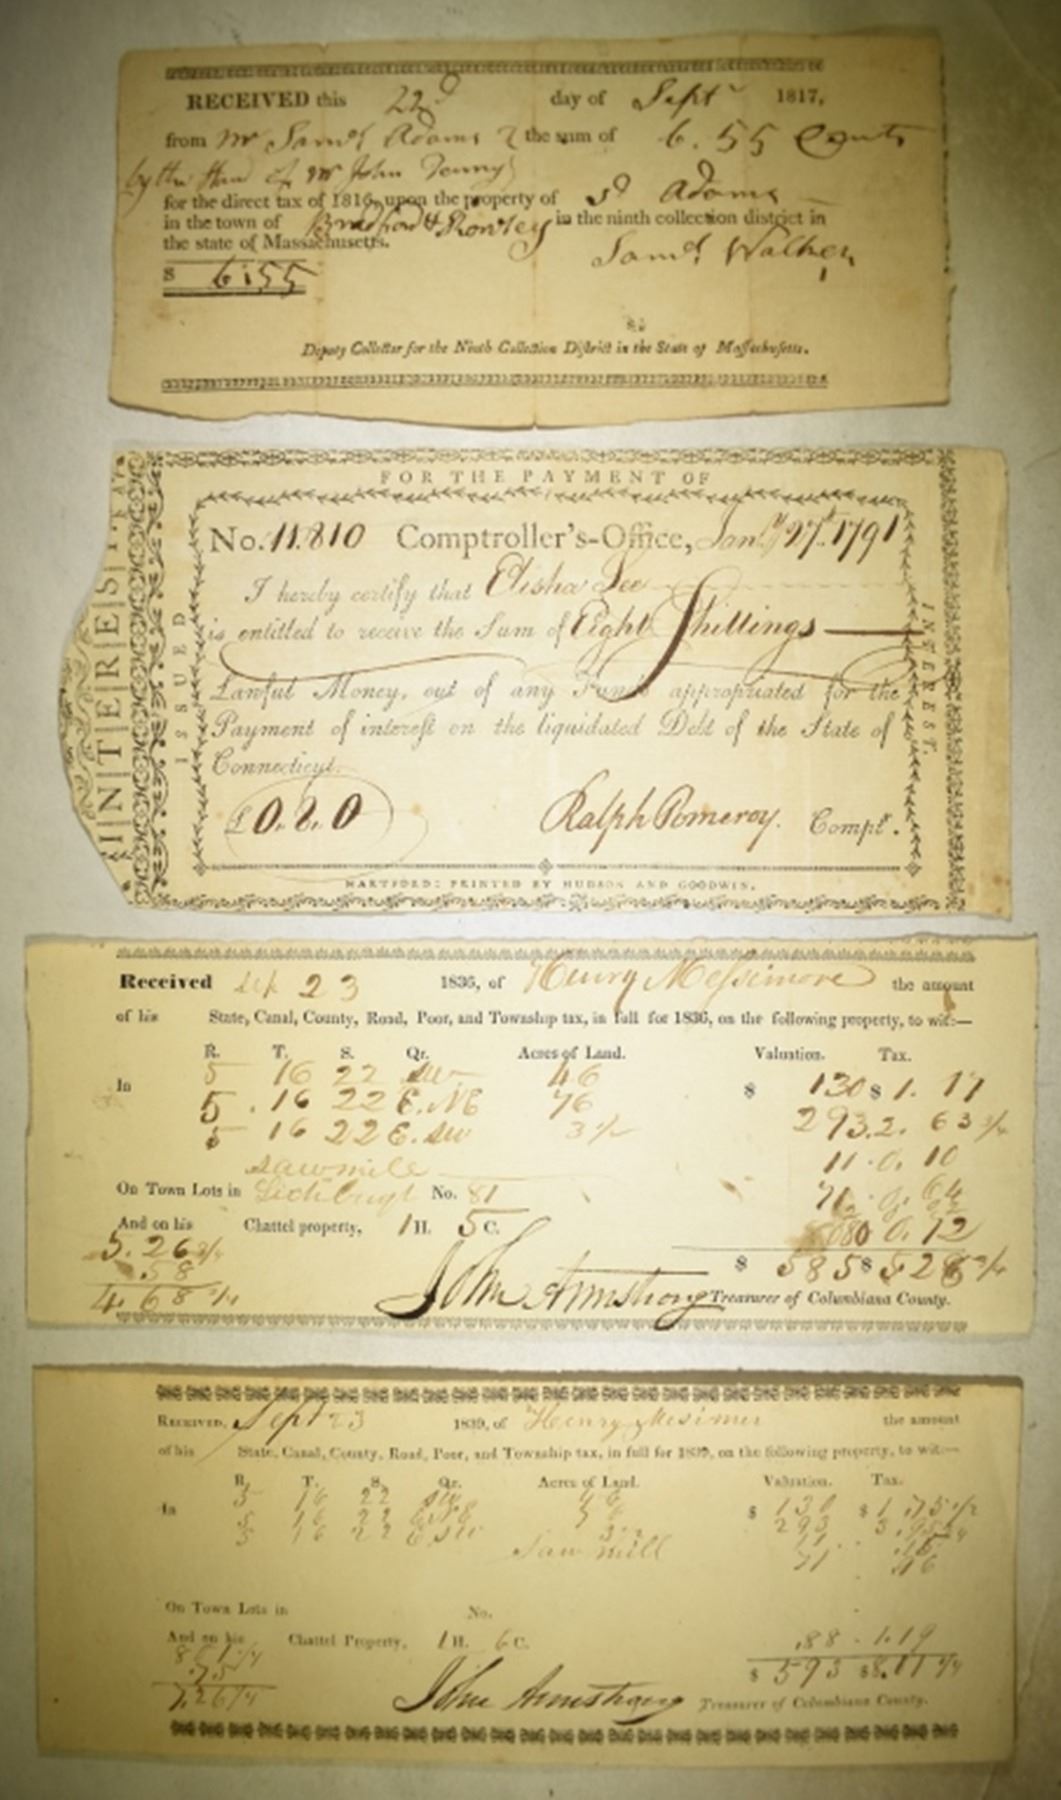 RECEIVED this 22d day of Sept 1817,
from Mr Saml Adams the sum of 6.55 Cents
by the Hand of Mr John Tenny
for the direct tax of 1816, upon the property of Sd Adams
in the town of Bradford & Rowley in the ninth collection district in
the state of Massachusetts.
Saml Walker
$ 6:55
Deputy Collector for the Ninth Collection District in the State of Massachusetts.
FOR THE PAYMENT OF
INTEREST
ISSUED
INTEREST.
No. 11.810 Comptroller's-Office, Jany 27th 1791
I hereby certify that Elisha Lee
is entitled to receive the Sum of Eight Shillings
Lawful Money, out of any Funds appropriated for the
Payment of interest on the liquidated Debt of the State of
Connecticut.
£0.8.0 Ralph Pomeroy. Compt.
HARTFORD: PRINTED BY HUDSON AND GOODWIN.
Received Sep 23 1836, of Henry Messimore the amount
of his State, Canal, County, Road, Poor, and Township tax, in full for 1836, on the following property, to wit:—
R. T. S. Qr. Acres of Land. Valuation. Tax.
In 5 16 22 SW 46 $ 130 $ 1. 17
5 . 16 22 E. NE 76 293. 2. 63 3/4
5 16 22 E. SW 3 1/2 11. 0. 10
sawmill 71. 0. 64
On Town Lots in No. 81
And on his Chattel property, 1 H. 5 C. 80 0. 12
5.26 3/4 $ 585 $ 5 26 3/4
.58
4.68 3/4
John Armstrong Treasurer of Columbiana County.
RECEIVED, Sept 23 1839, of Henry Mesimer the amount
of his State, Canal, County, Road, Poor, and Township tax, in full for 1839, on the following property, to wit:—
R. T. S. Qr. Acres of Land. Valuation. Tax.
In 5 16 22 SW 46 $ 130 $ 1.75 1/2
5 16 22 E NE 76 293 3.95
5 16 22 E SW 3 1/2 11 .15
Saw mill 71 .96
On Town Lots in No.
And on his Chattel Property, 1 H. 6 C. .88 . 1.19
8 01 1/4 $ 593 $8.01 1/4
.75
7.26 1/4
John Armstrong Treasurer of Columbiana County.